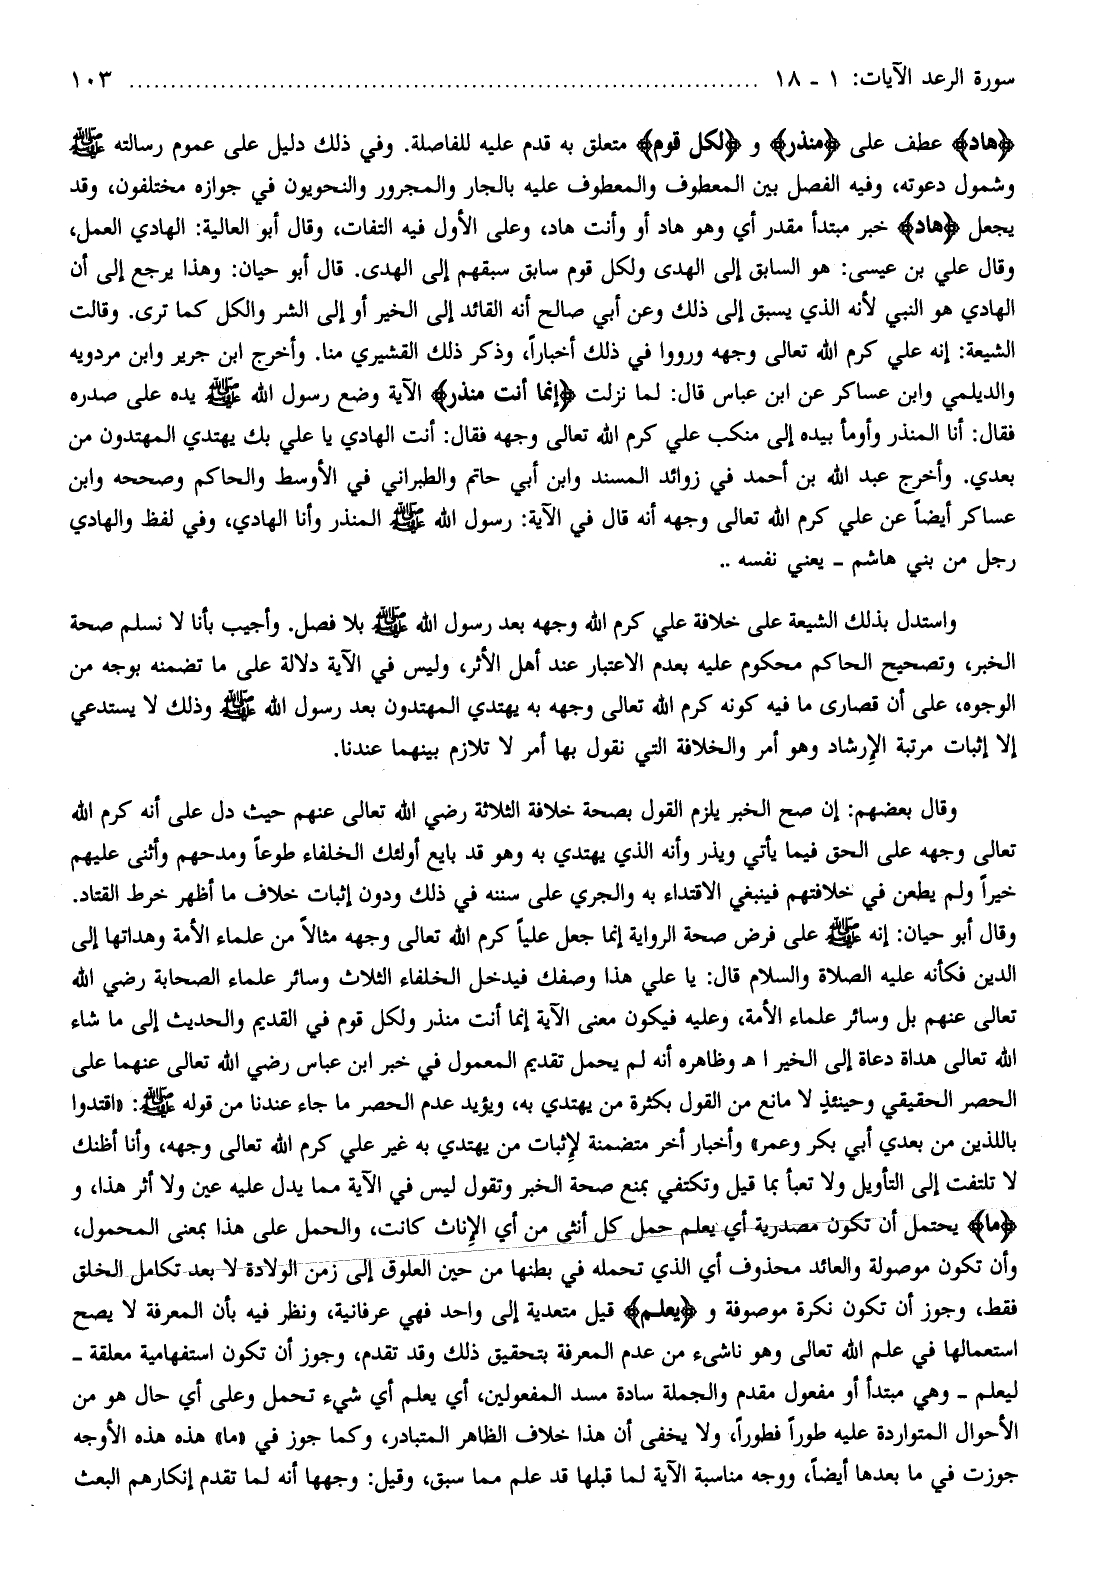 سورة الرعد الآيات: ١ ـ ١٨ ........................................................................... ١٠٣
﴿هاد﴾ عطف على ﴿منذر﴾ و ﴿لكل قوم﴾ متعلق به قدم عليه للفاصلة. وفي ذلك دليل على عموم رسالته ﷺ
وشمول دعوته، وفيه الفصل بين المعطوف والمعطوف عليه بالجار والمجرور والنحويون في جوازه مختلفون، وقد
يجعل ﴿هاد﴾ خبر مبتدأ مقدر أي وهو هاد أو وأنت هاد، وعلى الأول فيه التفات، وقال أبو العالية: الهادي العمل،
وقال علي بن عيسى: هو السابق إلى الهدى ولكل قوم سابق سبقهم إلى الهدى. قال أبو حيان: وهذا يرجع إلى أن
الهادي هو النبي لأنه الذي يسبق إلى ذلك وعن أبي صالح أنه القائد إلى الخير أو إلى الشر والكل كما ترى. وقالت
الشيعة: إنه علي كرم الله تعالى وجهه ورووا في ذلك أخباراً، وذكر ذلك القشيري منا. وأخرج ابن جرير وابن مردويه
والديلمي وابن عساكر عن ابن عباس قال: لما نزلت ﴿إنما أنت منذر﴾ الآية وضع رسول الله ﷺ يده على صدره
فقال: أنا المنذر وأومأ بيده إلى منكب علي كرم الله تعالى وجهه فقال: أنت الهادي يا علي بك يهتدي المهتدون من
بعدي. وأخرج عبد الله بن أحمد في زوائد المسند وابن أبي حاتم والطبراني في الأوسط والحاكم وصححه وابن
عساكر أيضاً عن علي كرم الله تعالى وجهه أنه قال في الآية: رسول الله ﷺ المنذر وأنا الهادي، وفي لفظ والهادي
رجل من بني هاشم ـ يعني نفسه ..
واستدل بذلك الشيعة على خلافة علي كرم الله وجهه بعد رسول الله ﷺ بلا فصل. وأجيب بأنا لا نسلم صحة
الخبر، وتصحيح الحاكم محكوم عليه بعدم الاعتبار عند أهل الأثر، وليس في الآية دلالة على ما تضمنه بوجه من
الوجوه، على أن قصارى ما فيه كونه كرم الله تعالى وجهه به يهتدي المهتدون بعد رسول الله ﷺ وذلك لا يستدعي
إلا إثبات مرتبة الإرشاد وهو أمر والخلافة التي نقول بها أمر لا تلازم بينهما عندنا.
وقال بعضهم: إن صح الخبر يلزم القول بصحة خلافة الثلاثة رضي الله تعالى عنهم حيث دل على أنه كرم الله
تعالى وجهه على الحق فيما يأتي ويذر وأنه الذي يهتدي به وهو قد بايع أولئك الخلفاء طوعاً ومدحهم وأثنى عليهم
خيراً ولم يطعن في خلافتهم فينبغي الاقتداء به والجري على سننه في ذلك ودون إثبات خلاف ما أظهر خرط القتاد.
وقال أبو حيان: إنه ﷺ على فرض صحة الرواية إنما جعل علياً كرم الله تعالى وجهه مثالاً من علماء الأمة وهداتها إلى
الدين فكأنه عليه الصلاة والسلام قال: يا علي هذا وصفك فيدخل الخلفاء الثلاث وسائر علماء الصحابة رضي الله
تعالى عنهم بل وسائر علماء الأمة، وعليه فيكون معنى الآية إنما أنت منذر ولكل قوم في القديم والحديث إلى ما شاء
الله تعالى هداة دعاة إلى الخير ا هـ وظاهره أنه لم يحمل تقديم المعمول في خبر ابن عباس رضي الله تعالى عنهما على
الحصر الحقيقي وحينئذٍ لا مانع من القول بكثرة من يهتدي به، ويؤيد عدم الحصر ما جاء عندنا من قوله ﷺ: «اقتدوا
باللذين من بعدي أبي بكر وعمر» وأخبار أخر متضمنة لإثبات من يهتدي به غير علي كرم الله تعالى وجهه، وأنا أظنك
لا تلتفت إلى التأويل ولا تعبأ بما قيل وتكتفي بمنع صحة الخبر وتقول ليس في الآية مما يدل عليه عين ولا أثر هذا، و
﴿ما﴾ يحتمل أن تكون مصدرية أي يعلم حمل كل أنثى من أي الإناث كانت، والحمل على هذا بمعنى المحمول،
وأن تكون موصولة والعائد محذوف أي الذي تحمله في بطنها من حين العلوق إلى زمن الولادة لا بعد تكامل الخلق
فقط، وجوز أن تكون نكرة موصوفة و ﴿يعلم﴾ قيل متعدية إلى واحد فهي عرفانية، ونظر فيه بأن المعرفة لا يصح
استعمالها في علم الله تعالى وهو ناشىء من عدم المعرفة بتحقيق ذلك وقد تقدم، وجوز أن تكون استفهامية معلقة ـ
ليعلم ـ وهي مبتدأ أو مفعول مقدم والجملة سادة مسد المفعولين، أي يعلم أي شيء تحمل وعلى أي حال هو من
الأحوال المتواردة عليه طوراً فطوراً، ولا يخفى أن هذا خلاف الظاهر المتبادر، وكما جوز في «ما» هذه هذه الأوجه
جوزت في ما بعدها أيضاً، ووجه مناسبة الآية لما قبلها قد علم مما سبق، وقيل: وجهها أنه لما تقدم إنكارهم البعث